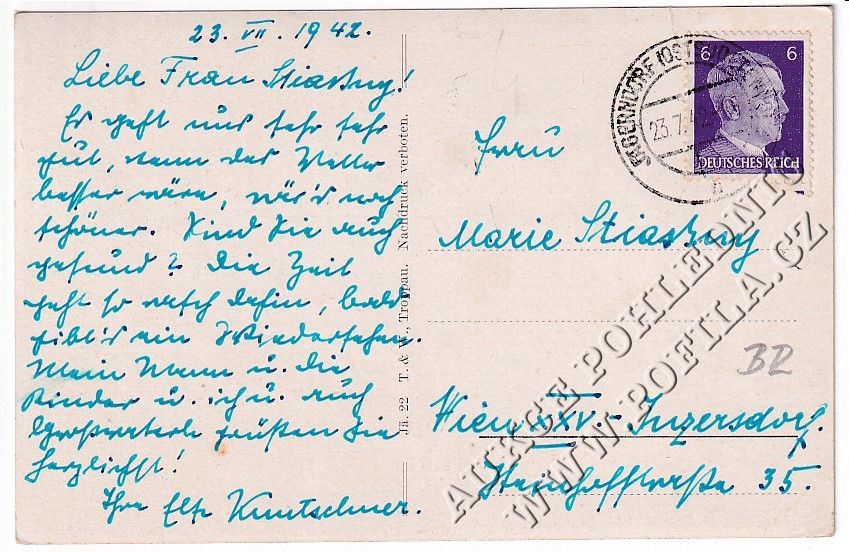 23. VII. 1942.
Liebe Frau Stiassny!
Es geht uns sehr sehr
gut, wenn das Wetter
besser wäre, wär's noch
schöner. Sind Sie auch
gesund? Die Zeit
geht so rasch dahin, bald
gibt's ein Wiedersehen.
Mein Mann u. die
Kinder u. ich u. auch
grüßen Sie
herzlichst!
Ihre Kuntschner.
Jä. 22 T. & W., Troppau. Nachdruck verboten.
JÄGERNDORF (OST
23.7.42
6 6
DEUTSCHES REICH
Frau
Marie Stiassny
Wien XXV.- Inzersdorf.
35.
AUKCE POHLEDNIC
WWW.POFILA.CZ